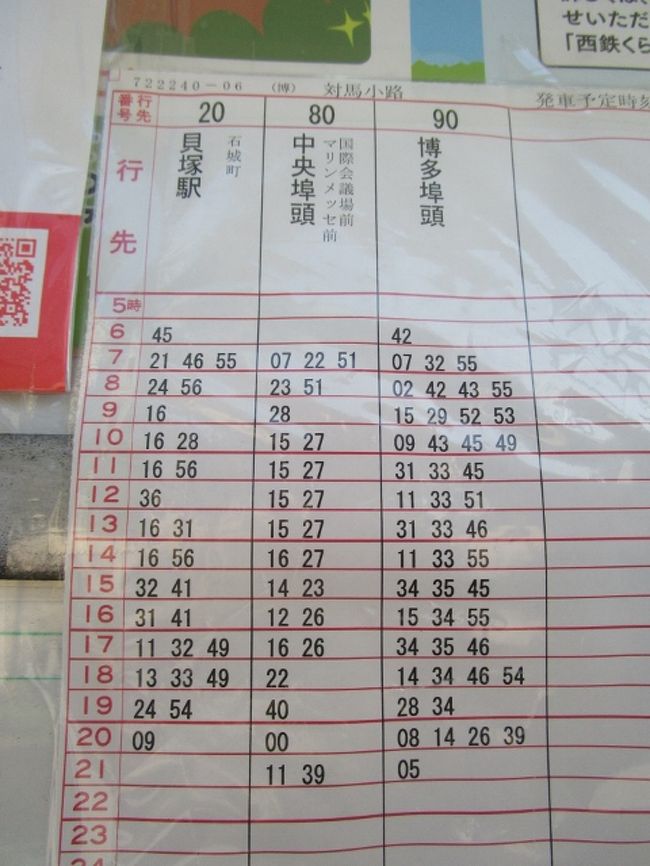 せいただ
「西鉄くら
722240-06 (博) 対馬小路 発車予定時刻
行先番号 20 80 90
行先 貝塚駅 石城町 中央埠頭 国際会議場前 マリンメッセ前 博多埠頭
5時
6 45 42
7 21 46 55 07 22 51 07 32 55
8 24 56 23 51 02 42 43 55
9 16 28 15 29 52 53
10 16 28 15 27 09 43 45 49
11 16 56 15 27 31 33 45
12 36 15 27 11 33 51
13 16 31 15 27 31 33 46
14 16 56 16 27 11 33 55
15 32 41 14 23 34 35 45
16 31 41 12 26 15 34 55
17 11 32 49 16 26 34 35 46
18 13 33 49 22 14 34 46 54
19 24 54 40 28 34
20 09 00 08 14 26 39
21 11 39 05
22
23
24